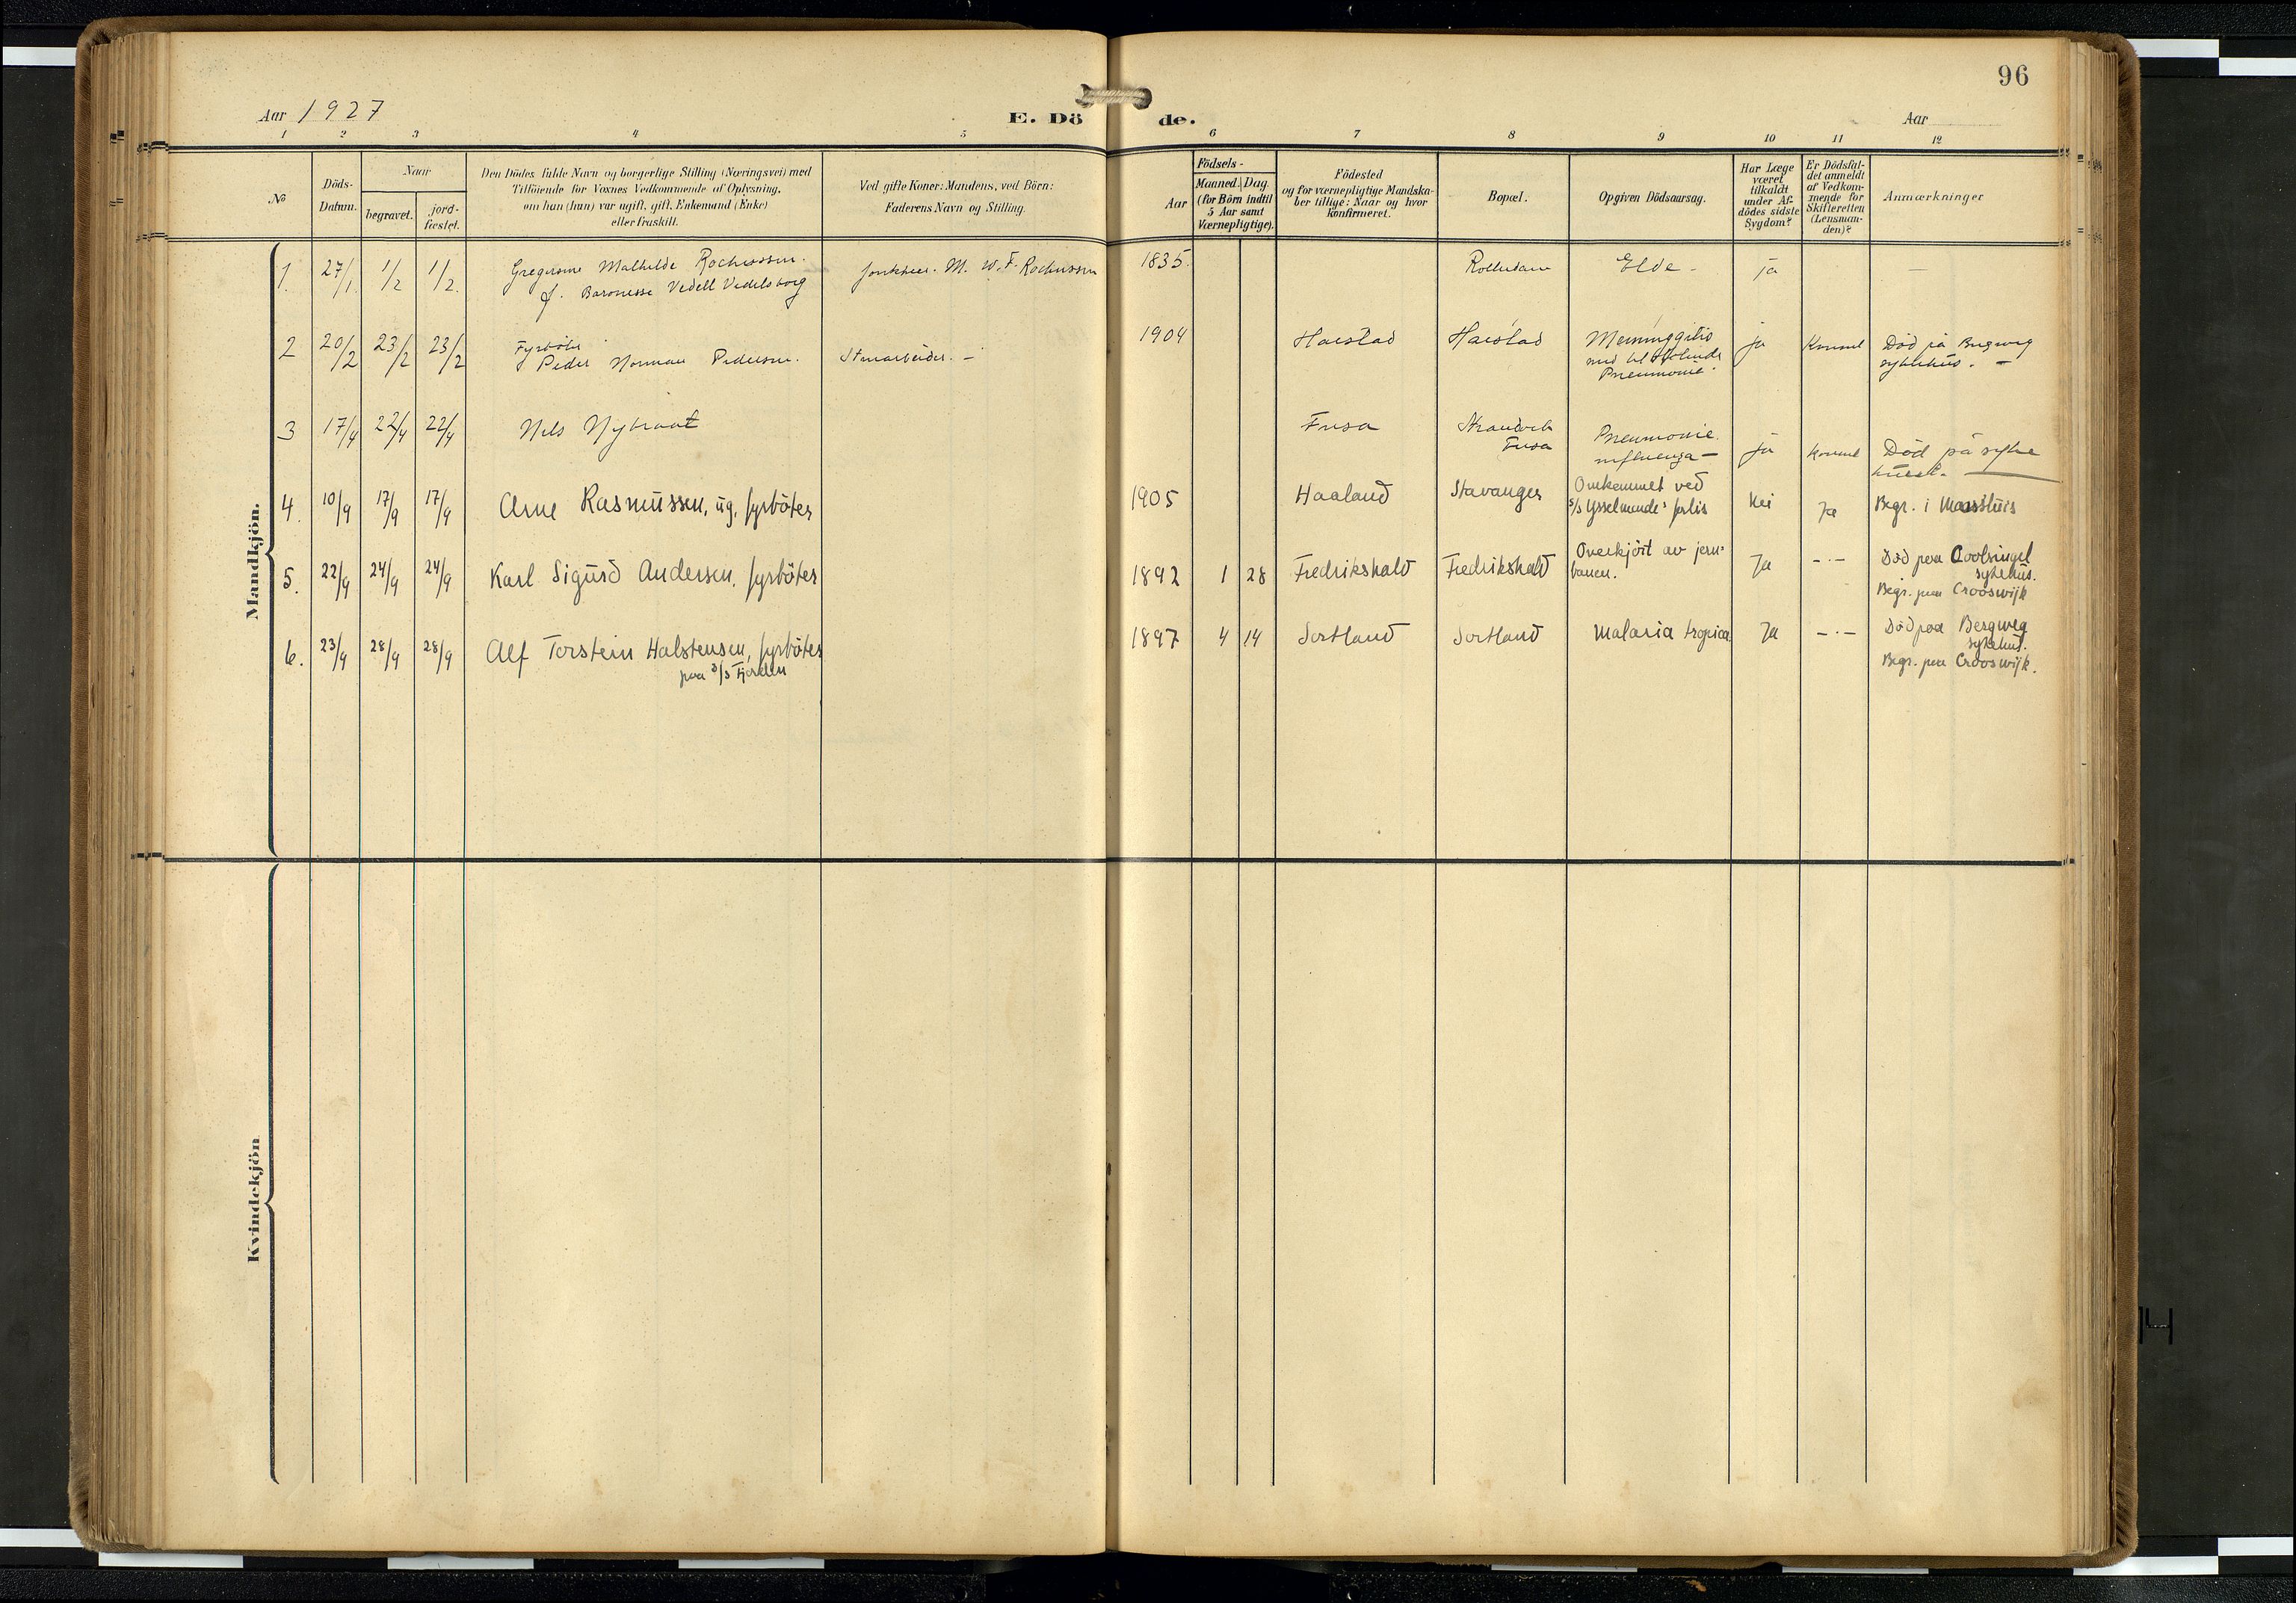 96
Aar 1927
E. Dö de.
Aar
1 2 3 4 5 6 7 8 9 10 11 12
No
Döds-
Datum.
Naar
begravet.
jord-
fæstet.
Den Dödes fulde Navn og borgerlige Stilling (Næringsvei) med
Tilföiende for Voxnes Vedkommende af Oplysning,
om han (hun) var ugift, gift, Enkemand (Enke)
eller fraskilt.
Ved gifte Koner: Mandens, ved Börn:
Faderens Navn og Stilling.
Födsels-
Aar
Maaned. Dag.
(for Börn indtil
5 Aar samt
Værnepligtige).
Födested
og for værnepligtige Mandska-
ber tillige: Naar og hvor
konfirmeret.
Bopæl.
Opgiven Dödsaarsag.
Har Læge
været
tilkaldt
under Af-
dödes sidste
Sygdom?
Er Dödsfal-
det anmeldt
af Vedkom-
mende for
Skifteretten
(Lensman-
den)?
Anmærkninger
Mandkjön.
1. 27/1 1/2 1/2. Gregersine Mathilde Rochussen. Jonkheer. M. W. F. Rochussen 1835. Rotterdam Elde - ja —
f. Baronesse Vedell Vedelsborg
2 20/2 23/2 23/2 Fyrböter
Peder Norman Pedersen. Stenarbeider. — 1904 Harstad Harstad Meninggitis ja Konsul Död på Bergweg
med
Pneumonie. sykehus. —
3 17/4 22/4 22/4 Nils Fusa Strandvik Pneumonie. ja konsul Död på syke
Fusa influenza — huset.
4. 10/9 17/9 17/9 Arne Rasmussen, ug. fyrböter 1905 Haaland Stavanger Omkommet ved Nei Ja Begr. i Maassluis
s/s Ysselmonde's forlis
5. 22/9 24/9 24/9 Karl Sigurd Andersen, fyrböter 1892 1 28 Fredrikshald Fredrikshald Overkjört av jern- Ja -·- Död paa Coolsingel
banen. sykehus.
Begr. paa Crooswijk
6. 23/9 28/9 28/9 Alf Torstein Halstensen, fyrböter 1897 4 14 Sortland Sortland Malaria tropica Ja -·- Död paa Bergweg
paa s/s Fjorden sykehus.
Begr. paa Crooswijk.
Kvindekjön